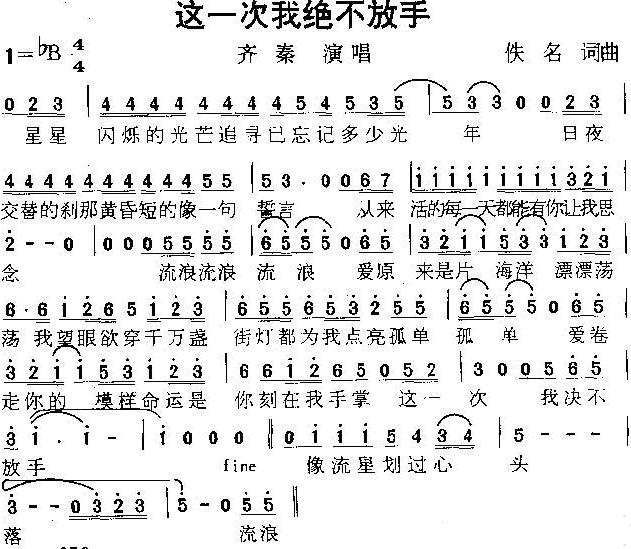 这一次我绝不放手
1=♭B 4/4 齐秦 演唱 佚名 词曲
0 2 3 | 4 4 4 4 4 4 4 4 5 4 5 4 5 3 5 | 5 3 3 0 0 2 3 |
星星 闪烁的光芒追寻已忘记多少光 年 日夜
4 4 4 4 4 4 4 4 4 4 5 5 | 5 3 · 0 0 6 7 | i i i i i i i i i 3 2 i |
交替的刹那黄昏短的像一句 誓言 从来 活的每一天都能有你让我思
2 - - 0 | 0 0 0 5 5 5 5 | 6 5 5 5 0 6 5 | 3 2 i i 5 3 i 2 3 |
念 流浪流浪 流浪 爱原 来是片 海洋 漂漂荡
6 · 6 i 2 6 5 i 2 3 | 6 6 i 2 6 5 i 2 3 | 6 5 5 5 0 6 5 |
荡 我望眼欲穿千万盏 街灯都为我点亮孤单 孤单 爱卷
3 2 i i 5 3 i 2 3 | 6 6 i 2 6 5 i 2 | 3 - 0 i 2 i |
走你的 模样命运是 你刻在我手掌 这一 次 我决不
3 i · i - | i 0 0 0 || 0 i i i 5 4 3 4 | 5 - -
放手 fine 像流星划过心 头
3 - - 0 3 2 3 | 5 - 0 5 5 ||
落 流浪